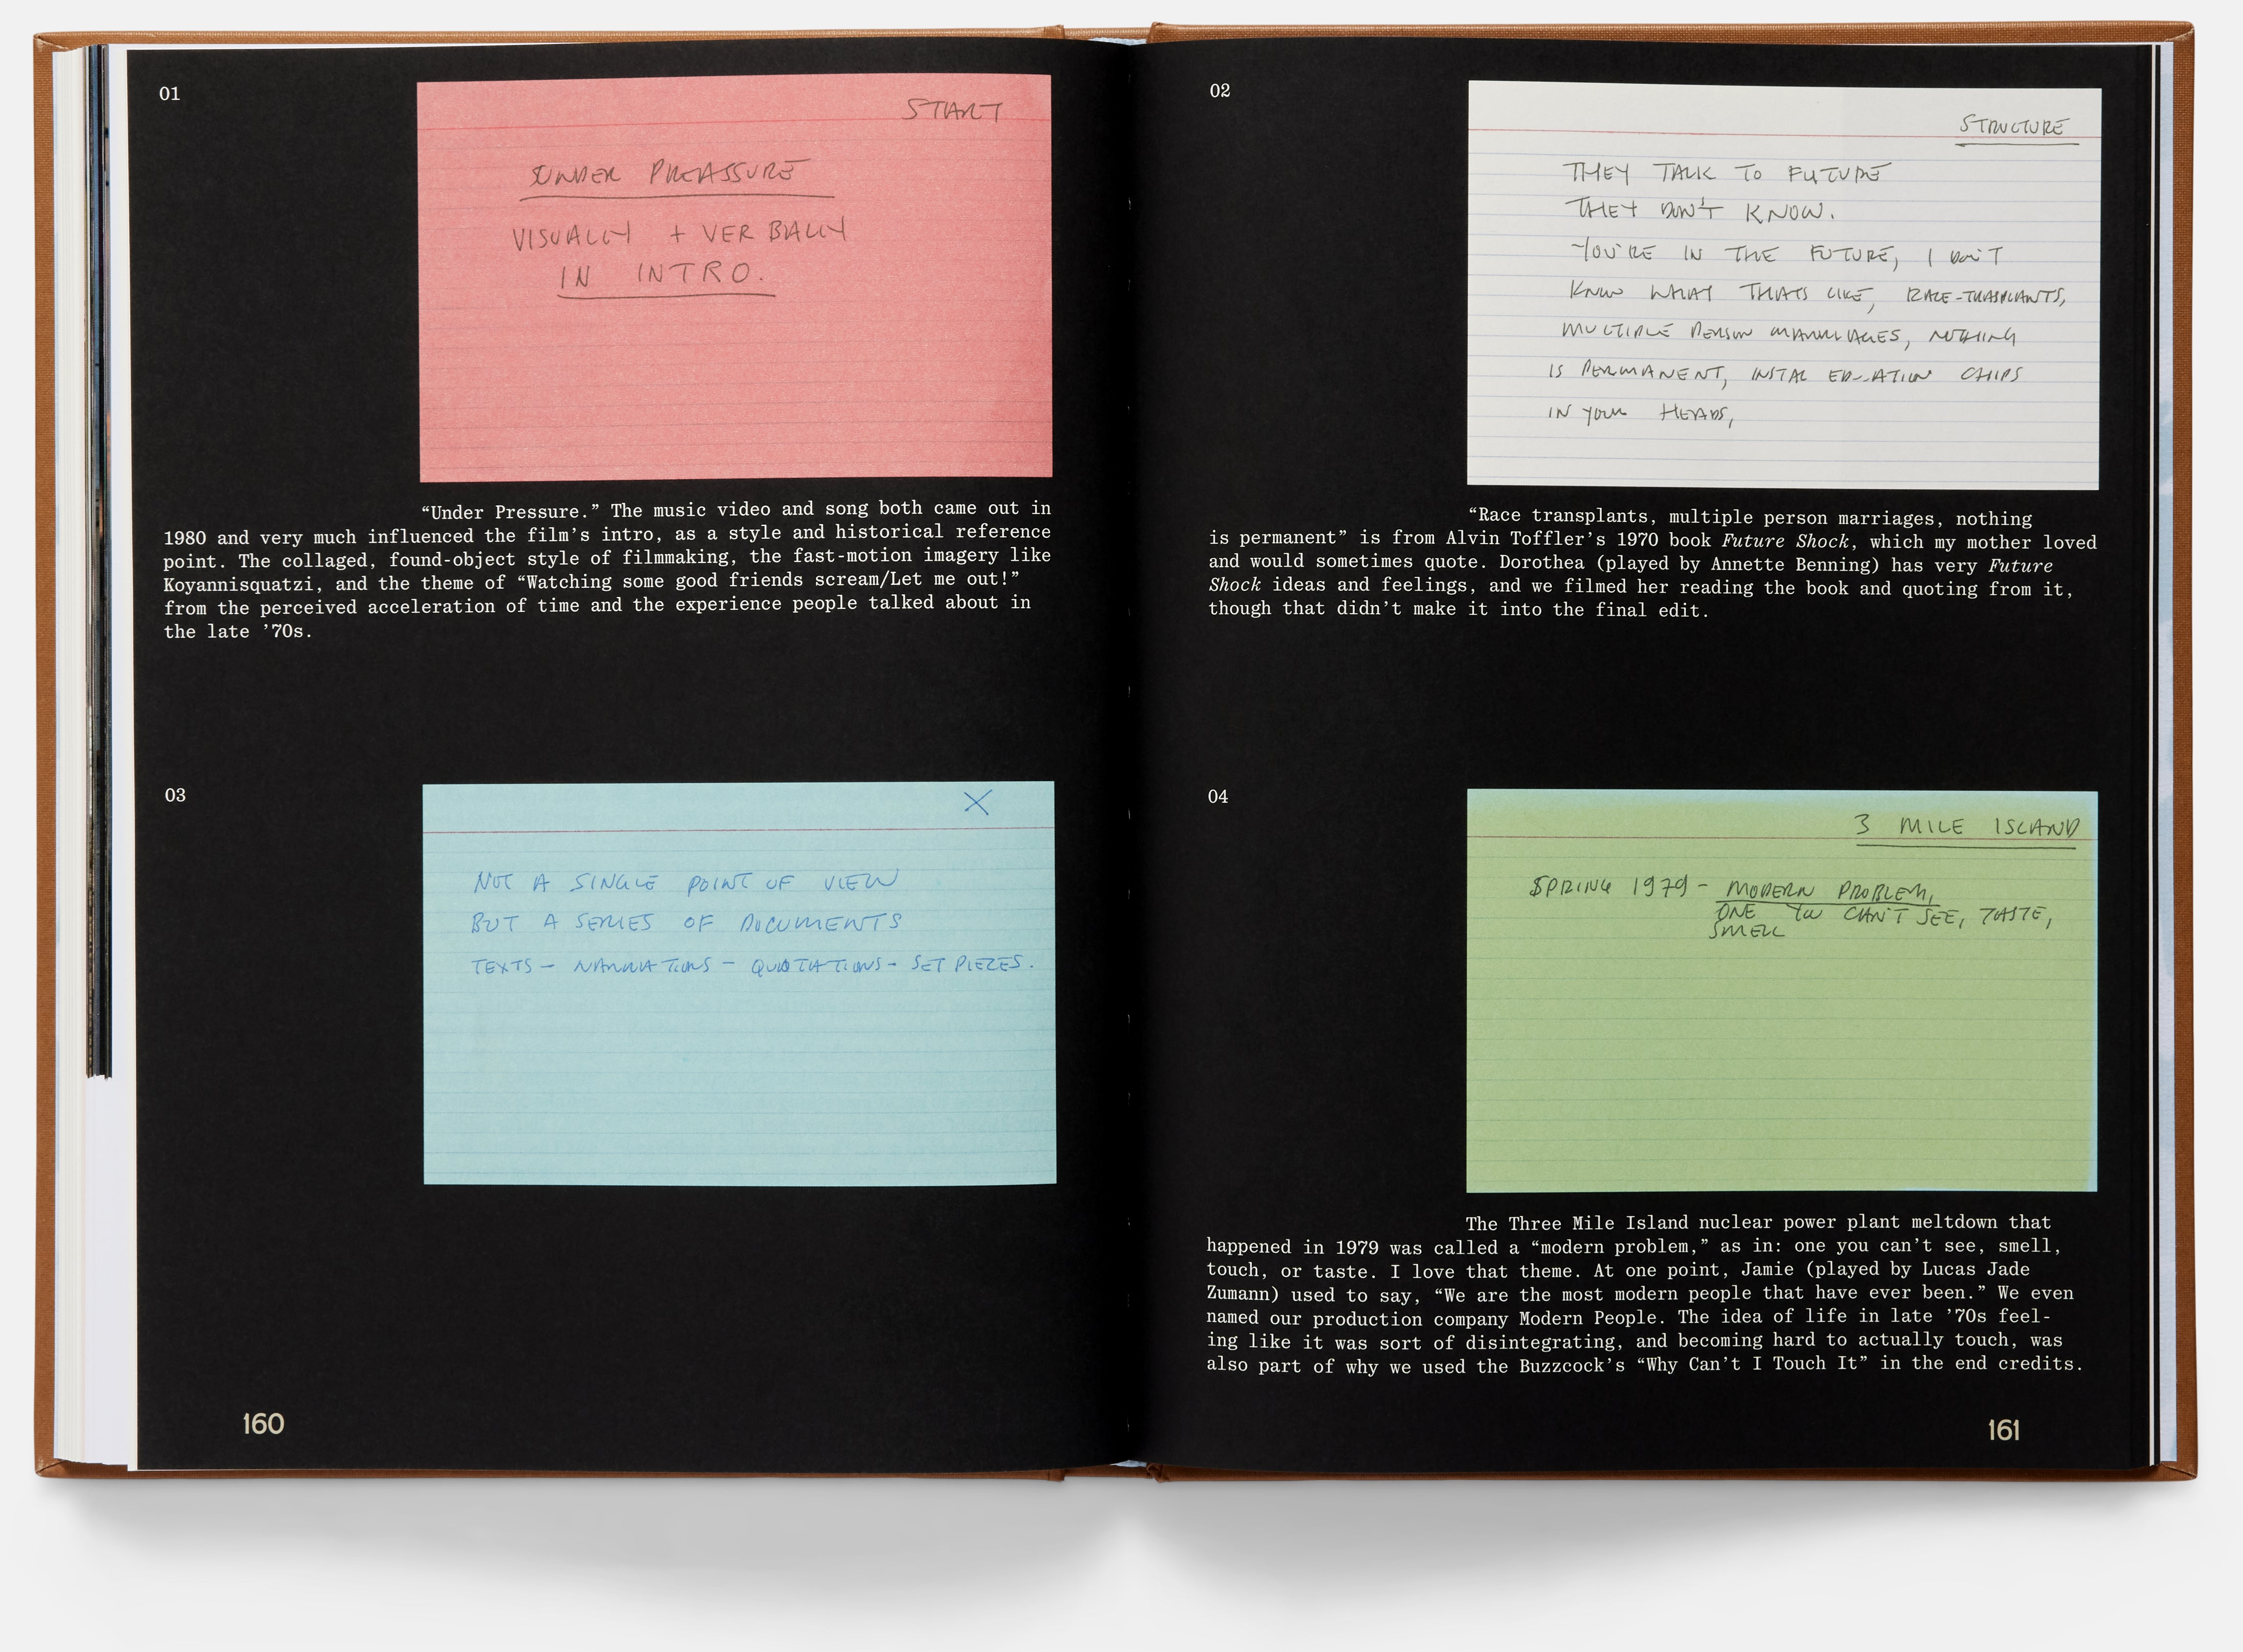 01
START
UNDER PREASSURE
VISUALLY + VERBALLY
IN INTRO.
“Under Pressure.” The music video and song both came out in
1980 and very much influenced the film’s intro, as a style and historical reference
point. The collaged, found-object style of filmmaking, the fast-motion imagery like
Koyannisquatzi, and the theme of “Watching some good friends scream/Let me out!”
from the perceived acceleration of time and the experience people talked about in
the late ’70s.
03
X
NOT A SINGLE POINT OF VIEW
BUT A SERIES OF DOCUMENTS
TEXTS – NARRATIONS – QUOTATIONS – SET PIECES.
160
02
STRUCTURE
THEY TALK TO FUTURE
THEY DON'T KNOW.
YOU'RE IN THE FUTURE, I DON'T
KNOW WHAT THATS LIKE, RACE-TRASPLANTS,
MULTIPLE PERSON MARRIAGES, NOTHING
IS PERMANENT, INSTAL CHIPS
IN YOUR HEADS,
“Race transplants, multiple person marriages, nothing
is permanent” is from Alvin Toffler’s 1970 book Future Shock, which my mother loved
and would sometimes quote. Dorothea (played by Annette Benning) has very Future
Shock ideas and feelings, and we filmed her reading the book and quoting from it,
though that didn’t make it into the final edit.
04
3 MILE ISLAND
SPRING 1979 – MODERN PROBLEM,
ONE YOU CAN'T SEE, TASTE,
SMELL
The Three Mile Island nuclear power plant meltdown that
happened in 1979 was called a “modern problem,” as in: one you can’t see, smell,
touch, or taste. I love that theme. At one point, Jamie (played by Lucas Jade
Zumann) used to say, “We are the most modern people that have ever been.” We even
named our production company Modern People. The idea of life in late ’70s feel-
ing like it was sort of disintegrating, and becoming hard to actually touch, was
also part of why we used the Buzzcock’s “Why Can’t I Touch It” in the end credits.
161